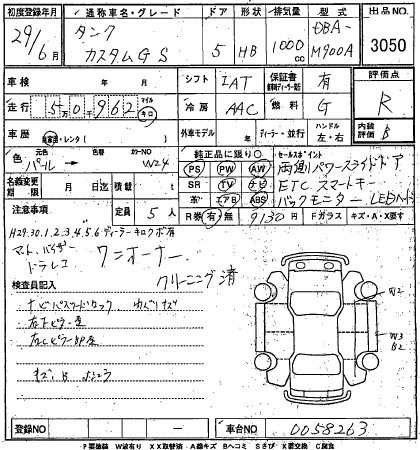 初度登録年月 通称車名・グレード ドア 形状 排気量 型式 出品NO.
29年 6月 タンク カスタムGS 5 HB 1000cc DBA-M900A 3050
車検 年 月 シフト IAT 保証書 有 評価点
走行 5 0 9 6 2 マイル キロ 冷房 AAC 燃料 G R
車歴 自家用・レンタ 外車モデル 年 ディーラー・並行 ハンドル 左・右 内装評価 B
色 元色 パール → 色替 カラーNO W24 純正品に限り○ セールスポイント
PS PW AW 両側パワースライドドア
名義変更期限 月 日迄 積載 t SR TV ナビ ETC スマートキー
革 エアB ABS バックモニター LEDヘッド
注意事項 定員 5人 R券 有・無 9130円 Fガラス キズ・A・X要す
H29.30.1.2.3.4.5.6ディーラーキロクボ有
マット、バイザー
ドラレコ ワンオーナー
クリーニング済
検査員記入
ナビパスワードロック
右Fピラー歪
右Cピラー
キズ、B
W2
W3
B2
登録NO 車台NO 0058263
P要塗装 W波有り XX取替済 A線キズ Bヘコミ Sさび X要交換 C腐食